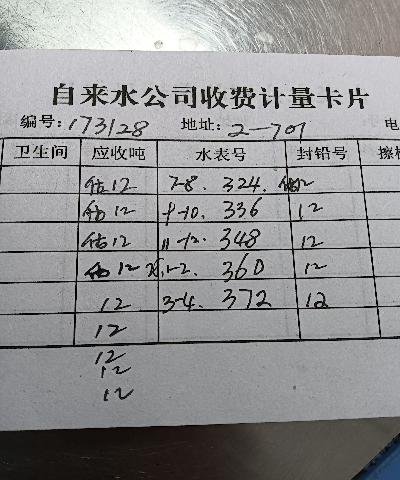 自来水公司收费计量卡片
编号:173128 地址:2-701 电
卫生间 应收吨 水表号 封铅号 擦
估12 7-8. 324. 估12
估12 9-10. 336 12
估12 11-12. 348 12
估12 1-2. 360 12
12 3-4. 372 12
12
12
12
12